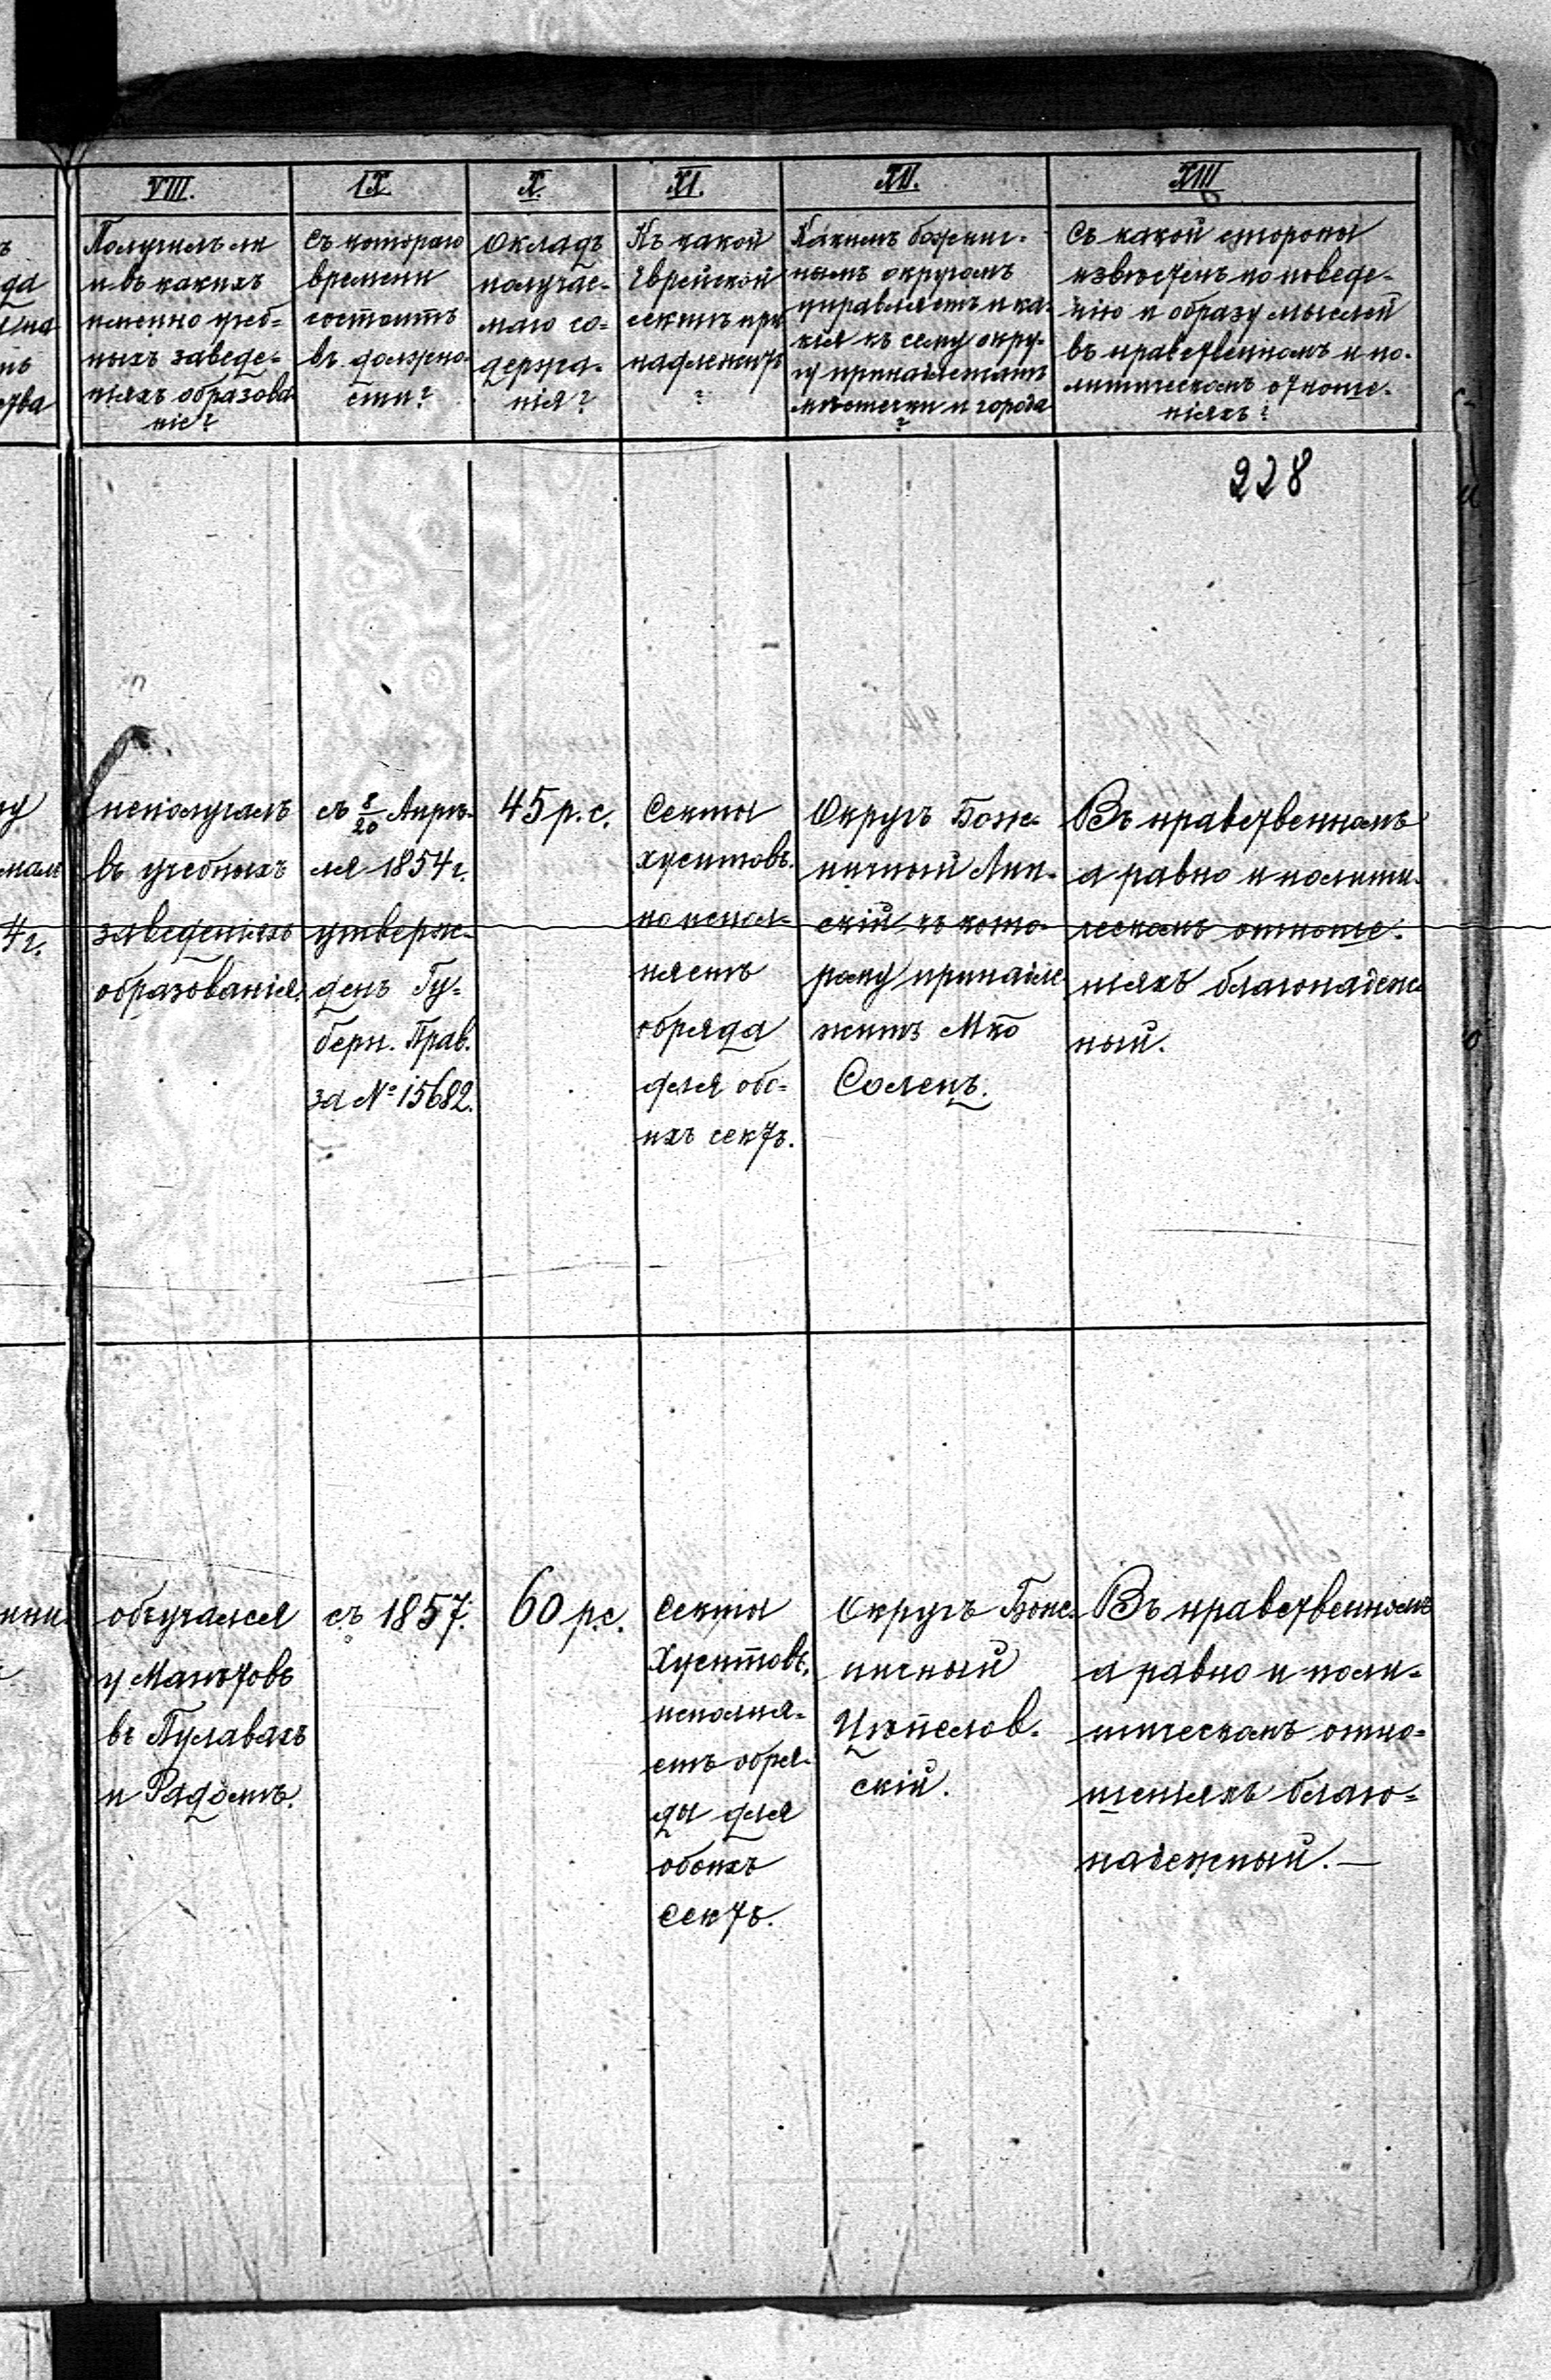 VIII.
Получилъ ли
и въ какихъ
именно учеб=
ныхъ заведе=
ніяхъ образова
ніе?
IX
Съ котораго
времени
состоитъ
въ должно-
сти?
X.
Окладъ
получае-
маго со=
держа-
нія?
XI.
Къ какой
Еврейской
сектѣ при
надлежитъ
?
XII.
Какимъ божнич-
нымъ округомъ
управляетъ и ка-
кія къ сему окру-
гу принадлежатъ
мѣстечки и города
?
XIII
Съ какой стороны
извѣстенъ по поведе-
нію и образу мыслей
въ нравственномъ и по-
литическомъ отноше-
ніяхъ?
228
неполучалъ
въ учебныхъ
заведеніяхъ
образованія.
съ 8/20 Апрѣ-
ля 1854 г.
утверж-
денъ Гу-
берн. Прав.
за № 15682.
45 р. с.
Секты
хуситовъ.
но испол=
няетъ
обряда
для обо=
ихъ сектъ.
Округъ Бож-
ничный Лип-
скій къ кото-
рому принадле
житъ Мко
Солецъ.
Въ нравственномъ
а равно и полити-
ческомъ отноше-
ніяхъ благонадеж-
ный.
обучался
у
въ Пулавахъ
и Радомѣ.
съ 1857.
60 р.с.
Секты
Хуситовъ,
исполня-
етъ обря-
ды для
обоихъ
сектъ.
Округъ Бож-
ничный
Цѣпелов-
скій.
Въ нравственномъ
а равно и поли-
тическомъ отно=
шеніяхъ благо=
надежный.—